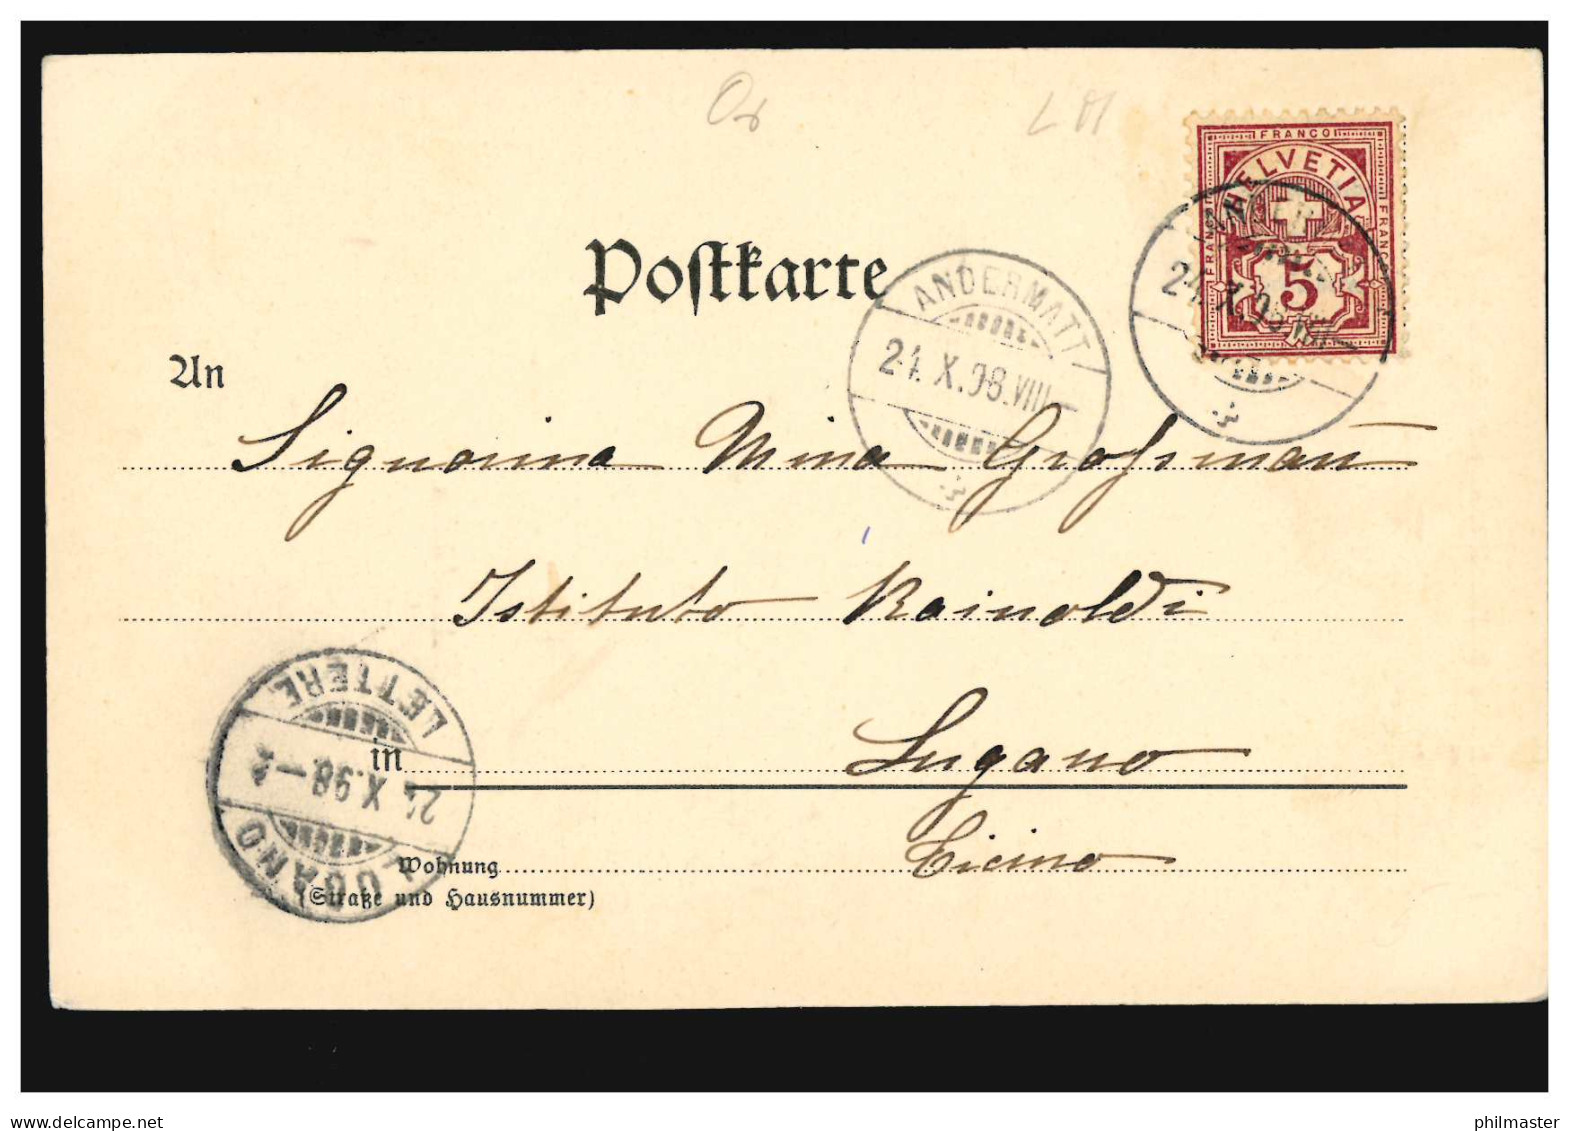 FRANCO
HELVETIA
FRANCO
FRANCO
5
Postkarte
ANDERMATT
24.X.98.VIII
24.X.98.VIII
An
Signorina Mina Großmañ
Istituto Rainoldi
LETTERE
24.X.98–
LUGANO
in Lugano
Ticino
Wohnung
(Straße und Hausnummer)
delcampe.net
philmaster